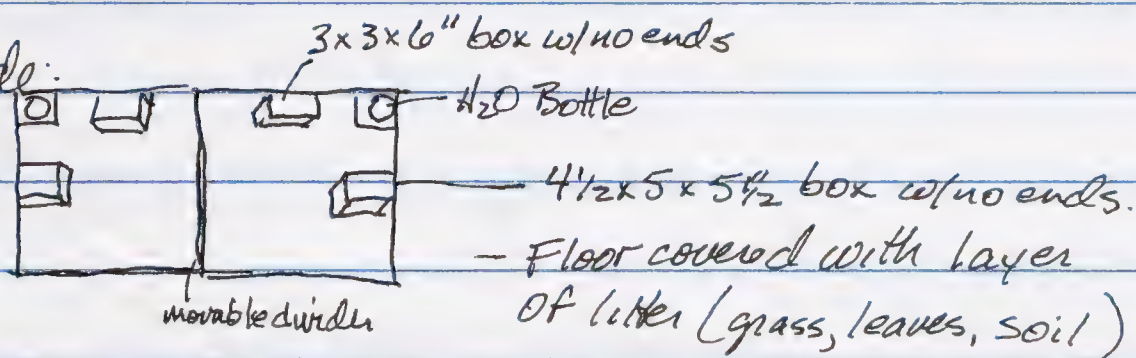 3x3x6" box w/no ends
H₂O Bottle
4½x5x5½ box w/no ends.
- Floor covered with layer
of litter (grass, leaves, soil)
movable divider